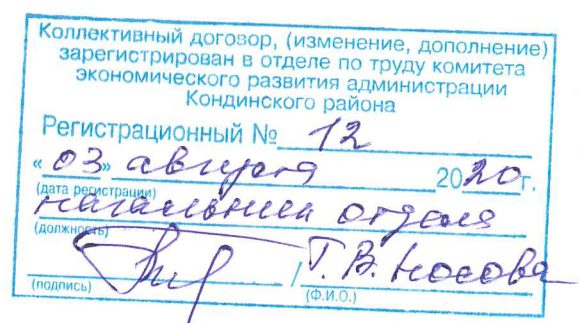 Коллективный договор, (изменение, дополнение)
зарегистрирован в отделе по труду комитета
экономического развития администрации
Кондинского района
Регистрационный № 12
« 03 » августа 2020 г.
(дата регистрации)
начальник отдела
(должность)
/ Г.В. Носова
(подпись) (Ф.И.О.)